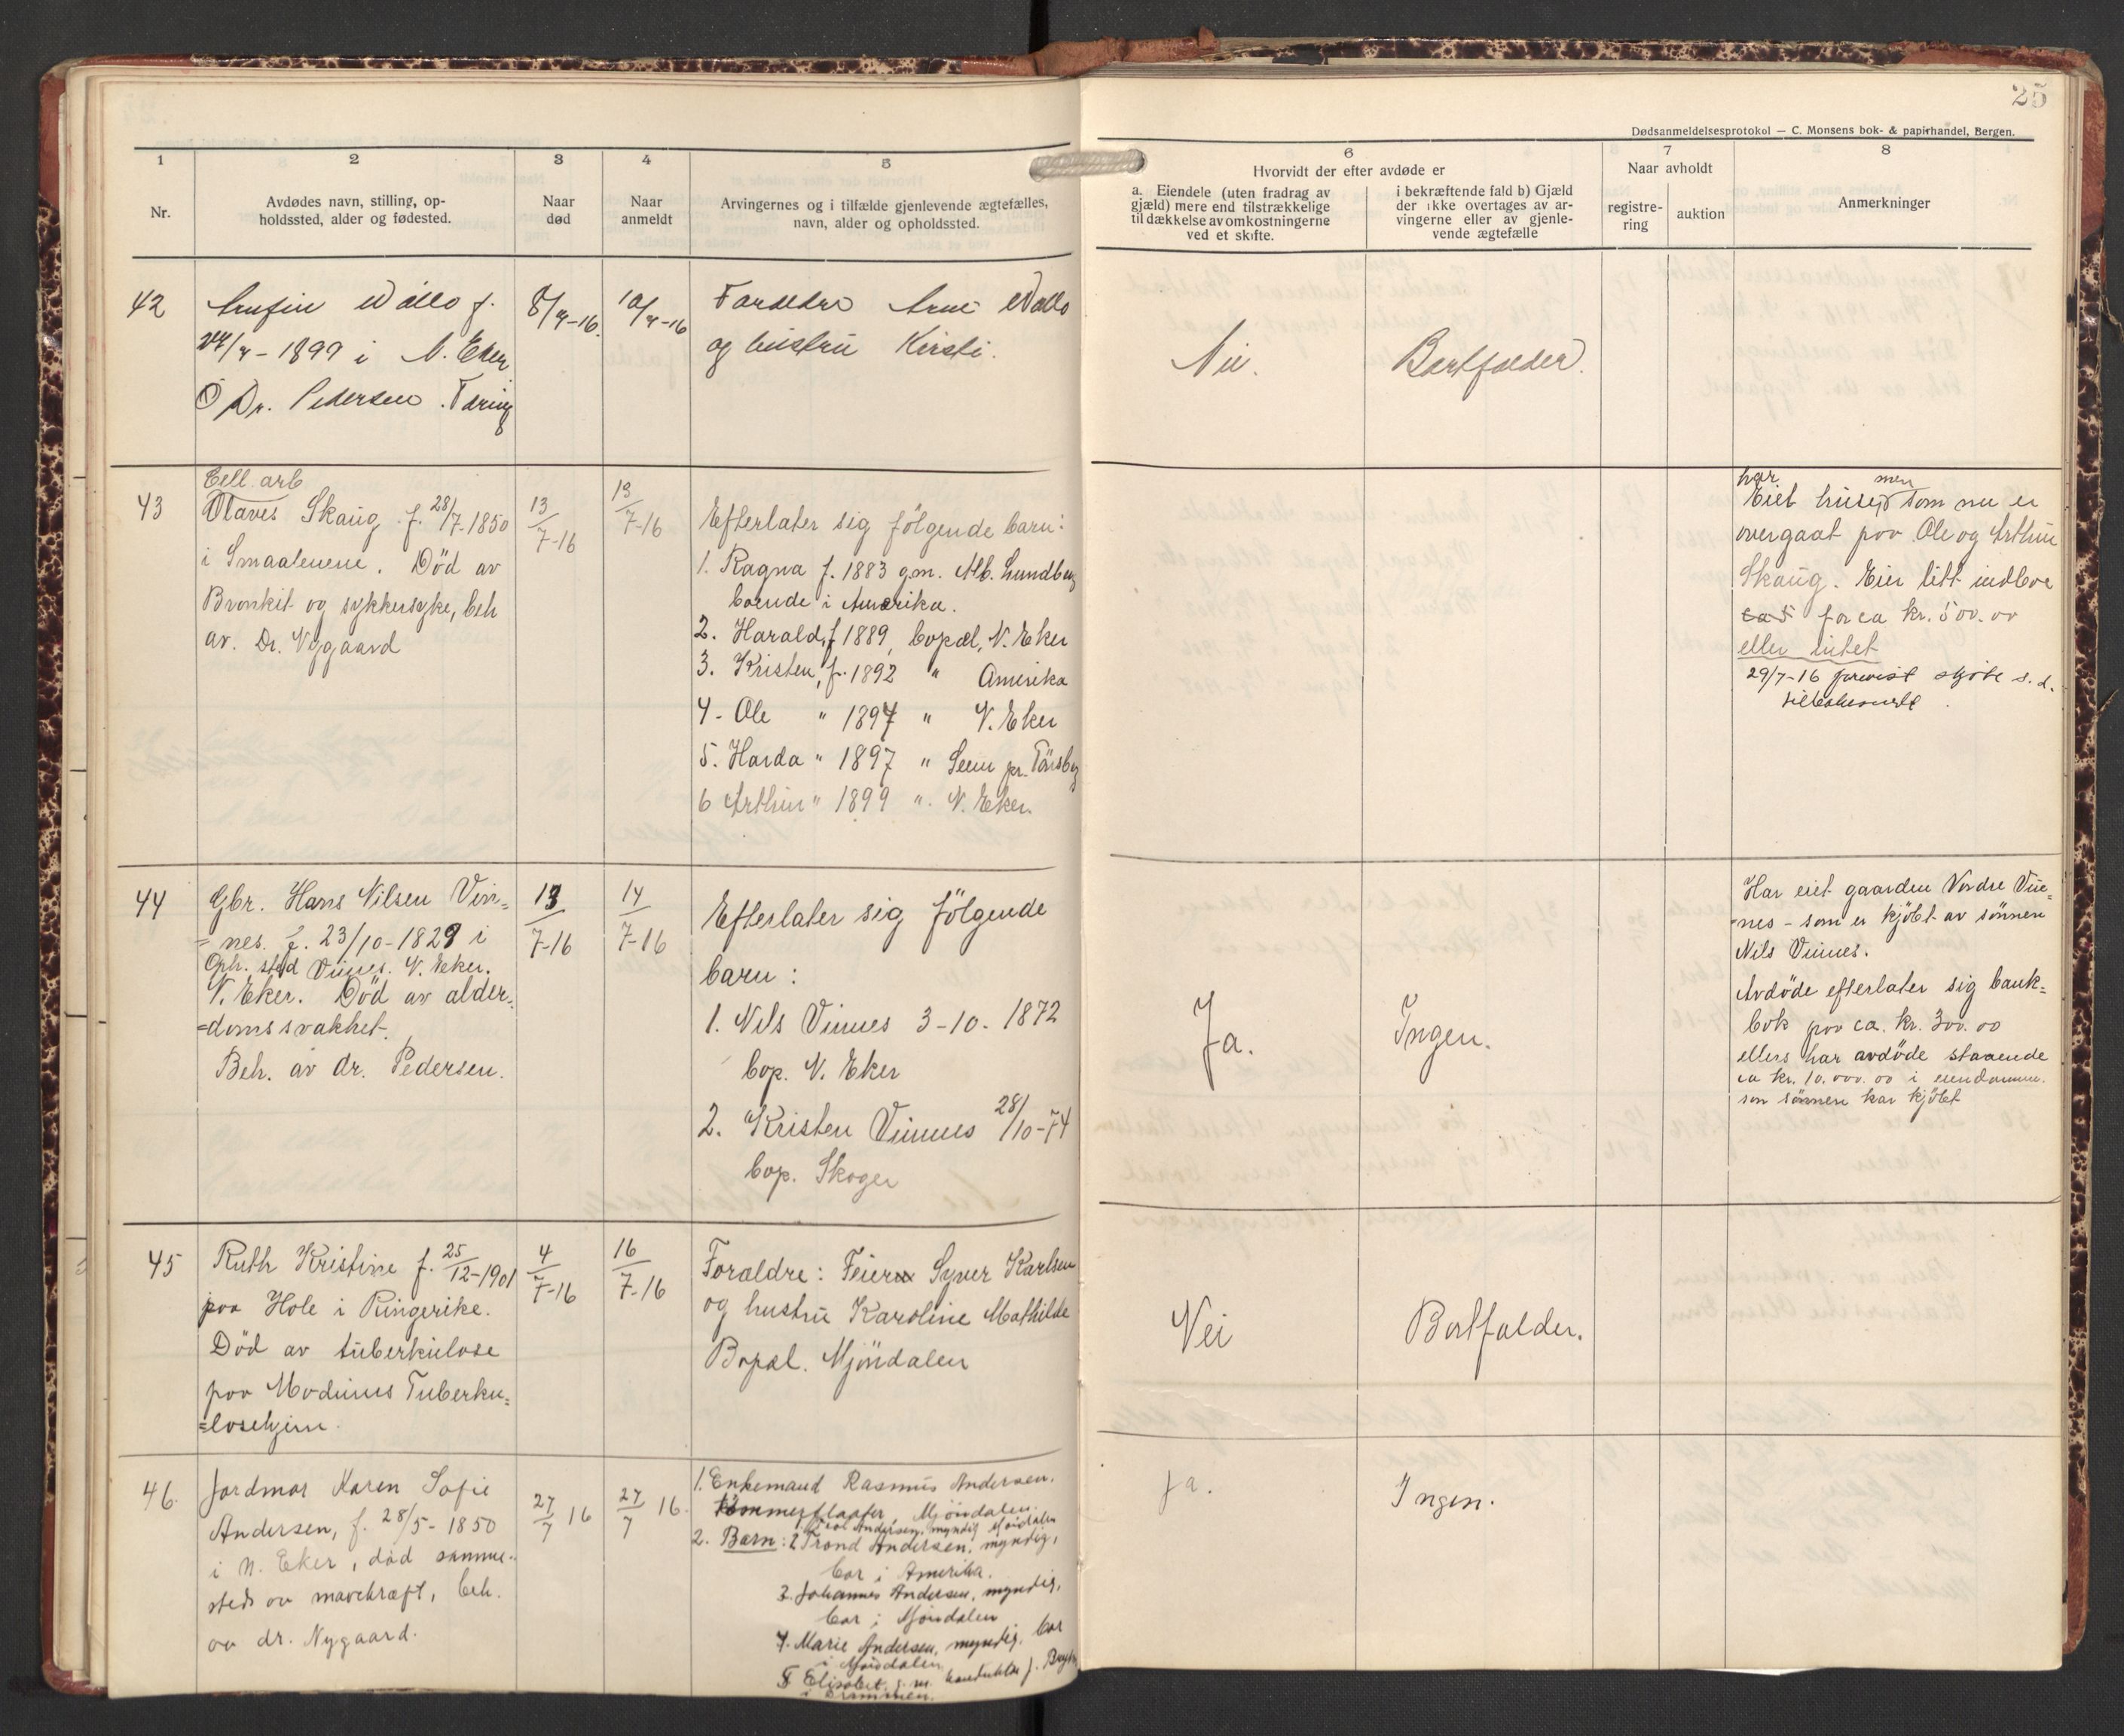 25
Dødsanmeldelsesprotokol — C. Monsens bok- & papirhandel, Bergen.
1
2
3
4
5
6
7
8
Nr.
Avdødes navn, stilling, op-
holdssted, alder og fødested.
Naar
død
Naar
anmeldt
Arvingernes og i tilfælde gjenlevende ægtefælles,
navn, alder og opholdssted.
Hvorvidt der efter avdøde er
a. Eiendele (uten fradrag av
gjæld) mere end tilstrækkelige
til dækkelse av omkostningerne
ved et skifte.
i bekræftende fald b) Gjæld
der ikke overtages av ar-
vingerne eller av gjenle-
vende ægtefælle
Naar avholdt
registre-
ring
auktion
Anmerkninger
42
f.
/4-1899 i N. Eker
Dr. Pedersen.
8/4-16.
10/4-16
Forældre Arne
og hustru Kirsti.
Nei.
Bortfalder.
43
Cell. arb
Olaves Skaug f. 28/7-1850
i Smaalenene. Død av
Bronkit og sykkersyke, beh
av. Dr. Nygaard
13/7-16
13/7-16
Efterlater sig følgende barn:
1. Ragna f. 1883 g.m. Alb. Lundberg
boende i Amerika.
2. Harald, f 1889, bopæl, N. Eker
3. Kristen, f. 1892 " Amerika
4- Ole " 1894 " N. Eker
5. Harda " 1897 " Seem pr. Tönsberg
6 Arthur " 1899 ". N. Eker.
har men
Eiet huset som nu er
overgaat paa Ole og Arthur
Skaug. Eier litt indbo
for ca kr. 500.00
eller intet
29/7-16 forevist skjöte s. d.
44
Gbr. Hans Nilsen Vin=
=nes. f. 23/10-1829 i
Oph. sted Vinnes. N. Eker.
N. Eker. Död av alder=
=domssvakhet.
Beh. av dr. Pedersen.
13/7-16
14/7-16
Efterlater sig følgende
barn:
1. Nils Vinnes 3-10-1872
bop. N. Eker
2. Kristen Vinnes 28/10-74
bop. Skoger
Ja.
Ingen.
Har eiet gaarden Nordre Vin=
=nes - som er kjöbt av sönnen
Nils Vinnes.
Avdöde efterlater sig bank=
bok paa ca. kr. 300.00
ellers har avdöde staaende
ca kr. 10.000.00 i eiendommen
som sönnen har kjöbt
45
Ruth Kristine f. 25/12-1901
paa Hole i Ringerike.
Död av tuberkulose
paa Modums Tuberku=
=losehjem.
4/7-16
16/7-16
Foraldre: Feier Syver Karlsen
og hustru Karoline Mathilde
Bopæl. Mjöndalen
Nei
Bortfalder.
46.
Jordmor Karen Sofie
Andersen, f. 28/5-1850
i N. Eker, död samme-
steds av mavekræft, beh.
av dr. Nygaard.
27/7 16
27/7 16.
1. Enkemand Rasmus Andersen.
Tömmerflaater, Mjöndalen.
Andersen, myndig Mjöndalen
2. Barn: 2 Trond Andersen, myndig,
bor i Amerika.
3. Johannes Andersen, myndig,
bor i Mjöndalen
4. Marie Andersen, myndig, bor
i Mjöndalen
5 Elisabet, g. m.
i Drammen.
Ja.
Ingen.